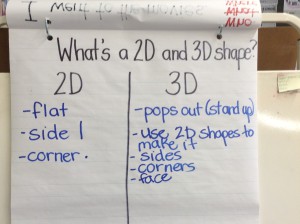 I went to the movies
What's a 2D and 3D shape?
2D
-flat
-side |
-corner .
3D
-pops out (stand up)
-use 2D shapes to
make it
-sides
-corners
-face